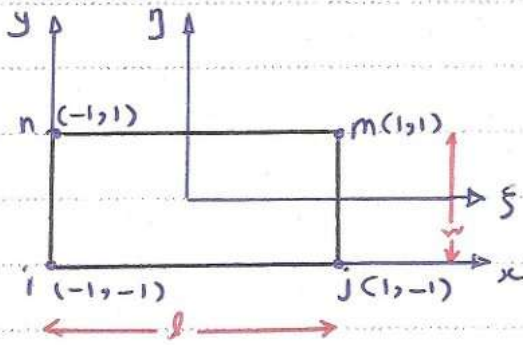 y η
n (-1,1) m(1,1)
ξ
w
x
i (-1,-1) j(1,-1)
l